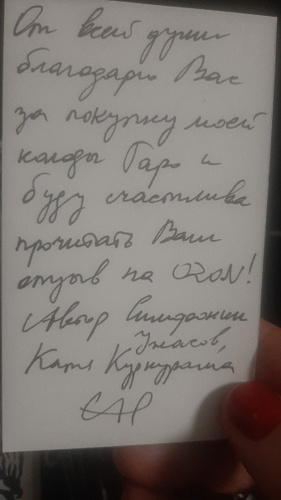 От всей души
благодарю Вас
за покупку моей
колоды Таро и
буду счастлива
прочитать Ваш
отзыв на OZON!
Автор Симфонии
Ужасов,
Катя